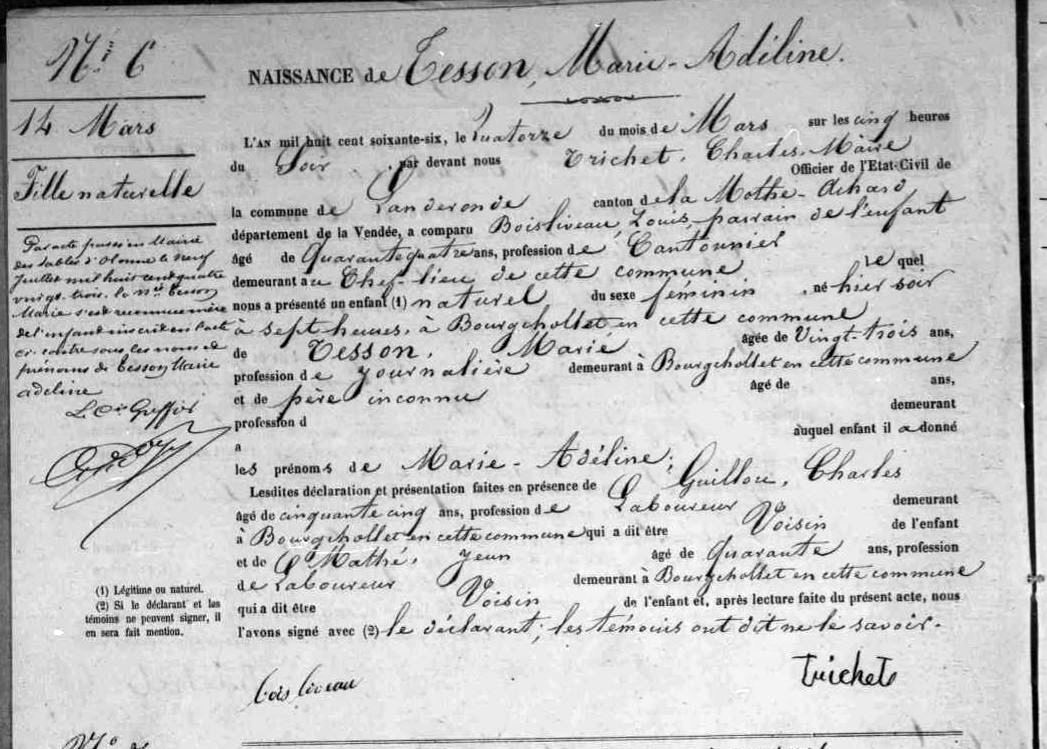 N.° 6
14 Mars
Fille naturelle
Par acte passé en Mairie
des Sables d'Olonne le neuf
Juillet mil huit cent quatre
vingt-trois, la née Tesson
Marie s'est reconnue mère
de l'enfant inscrit en l'acte
ci-contre sous les noms &
prénoms de Tesson Marie
adeline
L. Cis Greffier
(1) Légitime ou naturel.
(2) Si le déclarant et les
témoins ne peuvent signer, il
en sera fait mention.
NAISSANCE de Tesson, Marie-Adéline.
L'AN mil huit cent soixante-six, le Quatorze du mois de Mars sur les cinq heures
du Soir, par devant nous Trichet, Charles, Maire Officier de l'Etat-Civil de
la commune de Landeronde canton de la Mothe-Achard,
département de la Vendée, a comparu Boisliveau, Louis, parrain de l'enfant
âgé de Quarante quatre ans, profession de Cantonnier
demeurant au Chef-lieu de cette commune Le quel
nous a présenté un enfant (1) naturel du sexe féminin, né hier soir
à sept heures, à Bourgchollet en cette commune
de Tesson, Marie âgée de Vingt-trois ans,
profession de journalière demeurant à Bourgchollet en cette commune
et de père inconnu âgé de ans,
profession d demeurant
a auquel enfant il a donné
les prénoms de Marie-Adéline;
Lesdites déclaration et présentation faites en présence de Guillou, Charles
âgé de cinquante cinq ans, profession de Laboureur demeurant
à Bourgchollet en cette commune qui a dit être Voisin de l'enfant
et de Mathé, Jean âgé de Quarante ans, profession
de Laboureur demeurant à Bourgchollet en cette commune
qui a dit être Voisin de l'enfant et, après lecture faite du présent acte, nous
l'avons signé avec (2) le déclarant; les témoins ont dit ne le savoir.
boisliveau
Trichet
N.°